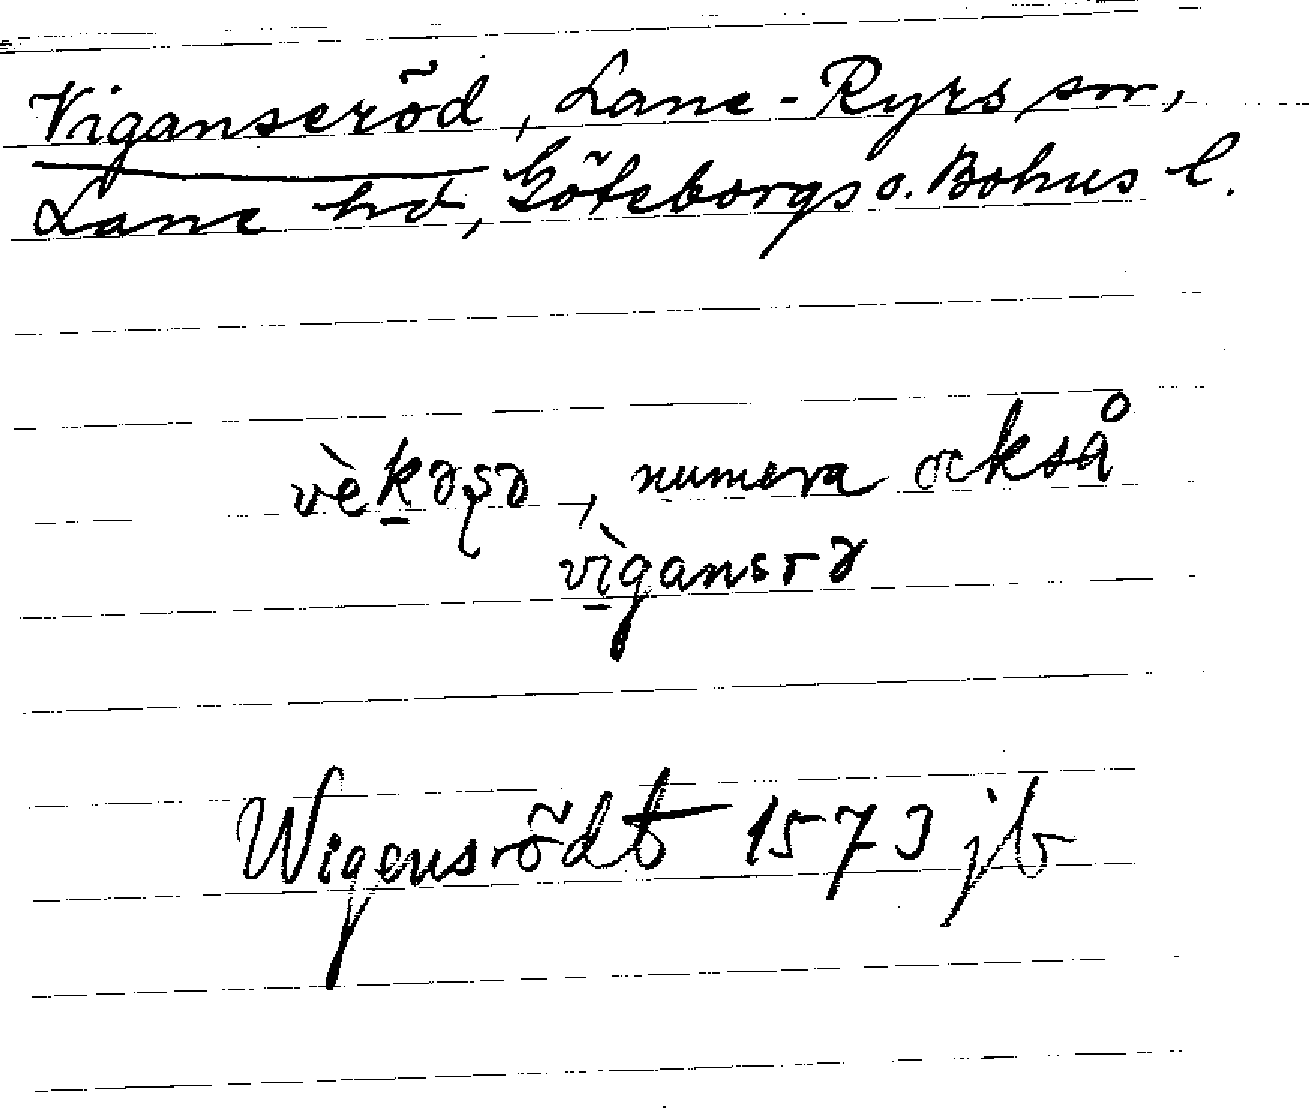 Viganseröd, Lane-Ryrs sn,
Lane hd, Göteborgs o. Bohus l.
vèkəʂə, numera också
vìgansrə
Wigensrödt 1573 jb